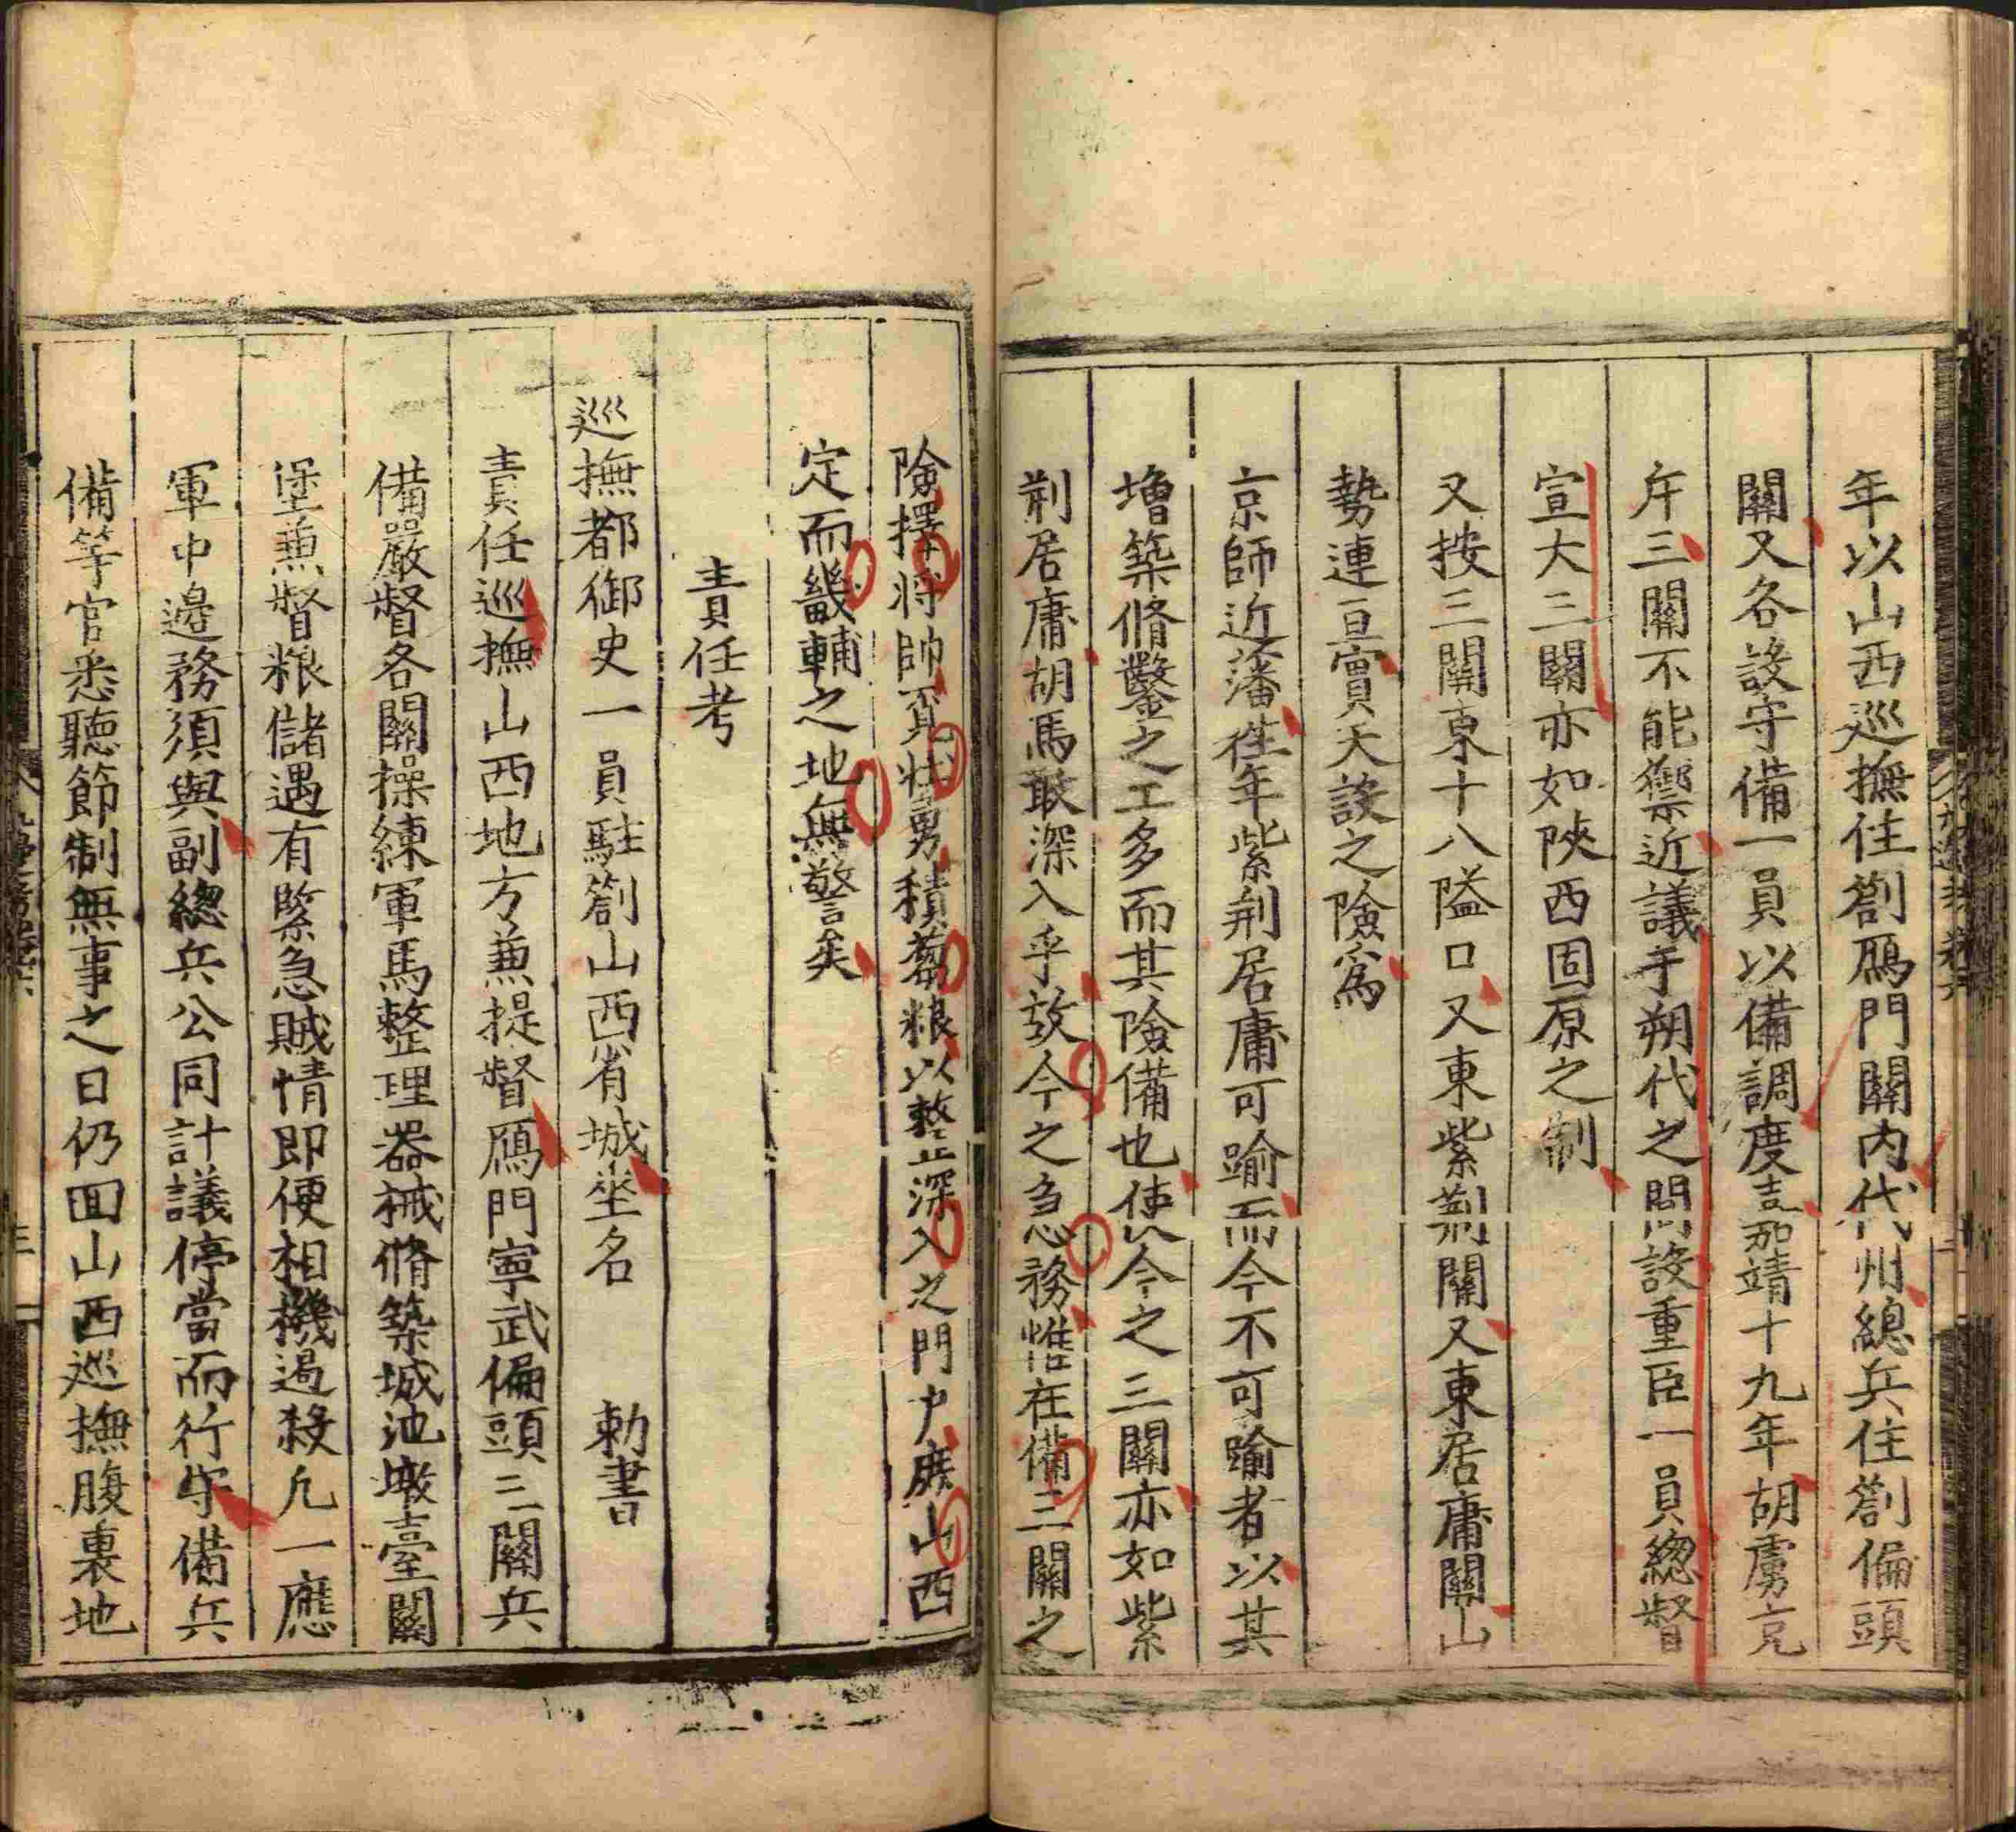 年以山西巡撫住劄鴈門關內代州總兵住劄偏頭
關又各設守備一員以備調度吉嘉靖十九年胡虜克
斥三關不能禦近議手朔代之間設重臣一員總督
宣大三關亦如陝西固原之制
又按三關東十八隘口又東紫荆關又東居庸關山
勢連亘實天設之險爲
京師近藩徃年紫荆居庸可踰而今不可踰者以其
增築脩鑿之工多而其險備也使今之三關亦如紫
荆居庸胡馬敢深入乎故今之急務惟在備三關之
險擇將帥頁壯勇積蒭粮以整深入之門户庶山西
定而畿輔之地無警矣
責任考
巡撫都御史一員駐劄山西省城坐名 勅書
責任巡撫山西地方兼提督鴈門寧武偏頭三關兵
備嚴督各關操練軍馬整理器械脩築城池墩臺關
堡兼督粮儲遇有緊急賊情即便相機遏殺凡一應
軍中邊務須與副總兵公同計議停當而行守備兵
備等官悉聽節制無事之日仍囬山西巡撫腹裏地